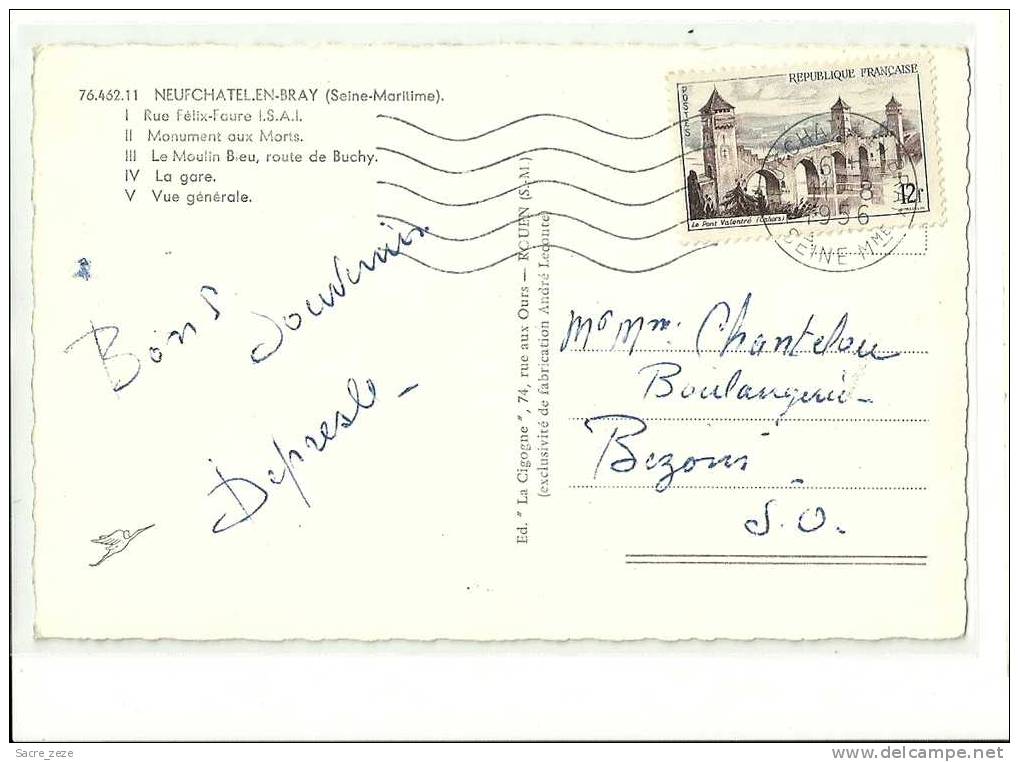 76.462.11 NEUFCHATEL-EN-BRAY (Seine-Maritime).
I Rue Félix-Faure I.S.A.I.
II Monument aux Morts.
III Le Moulin Bleu, route de Buchy.
IV La gare.
V Vue générale.
REPUBLIQUE FRANÇAISE
POSTES
12f
Le Pont Valentré (Cahors)
1956
SEINE MME
Bons Souvenirs
Depresle
Ed. " La Cigogne ", 74, rue aux Ours — ROUEN (S.-M.)
(exclusivité de fabrication André Leconte)
Mr Mme Chantelou
Boulangerie
Bezons
S.O.
Sacre_zeze
www.delcampe.net